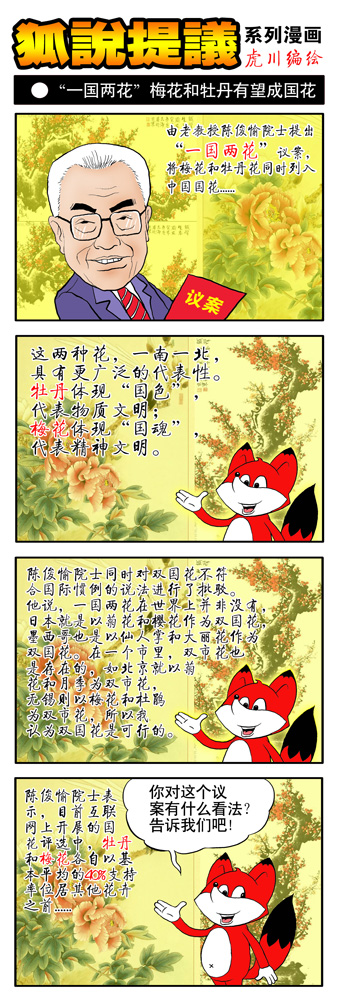 狐說提議
系列漫画
虎川编绘
●“一国两花”梅花和牡丹有望成国花
由老教授陈俊愉院士提出
“一国两花”议案，
将梅花和牡丹花同时列入
中国国花……
议案
这两种花，一南一北，
具有更广泛的代表性。
牡丹体现“国色”，
代表物质文明；
梅花体现“国魂”，
代表精神文明。
陈俊愉院士同时对双国花不符
合国际惯例的说法进行了批驳。
他说，一国两花在世界上并非没有，
日本就是以菊花和樱花作为双国花，
墨西哥也是以仙人掌和大丽花作为
双国花。在一个市里，双市花也
是存在的，如北京就以菊
花和月季为双市花，
无锡则以梅花和杜鹃
为双市花，所以我
认为双国花是可行的。
陈俊愉院士表
示，目前互联
网上开展的国
花评选中，牡丹
和梅花各自以基
本平均的40%支持
率位居其他花卉
之前……
你对这个议
案有什么看法？
告诉我们吧！